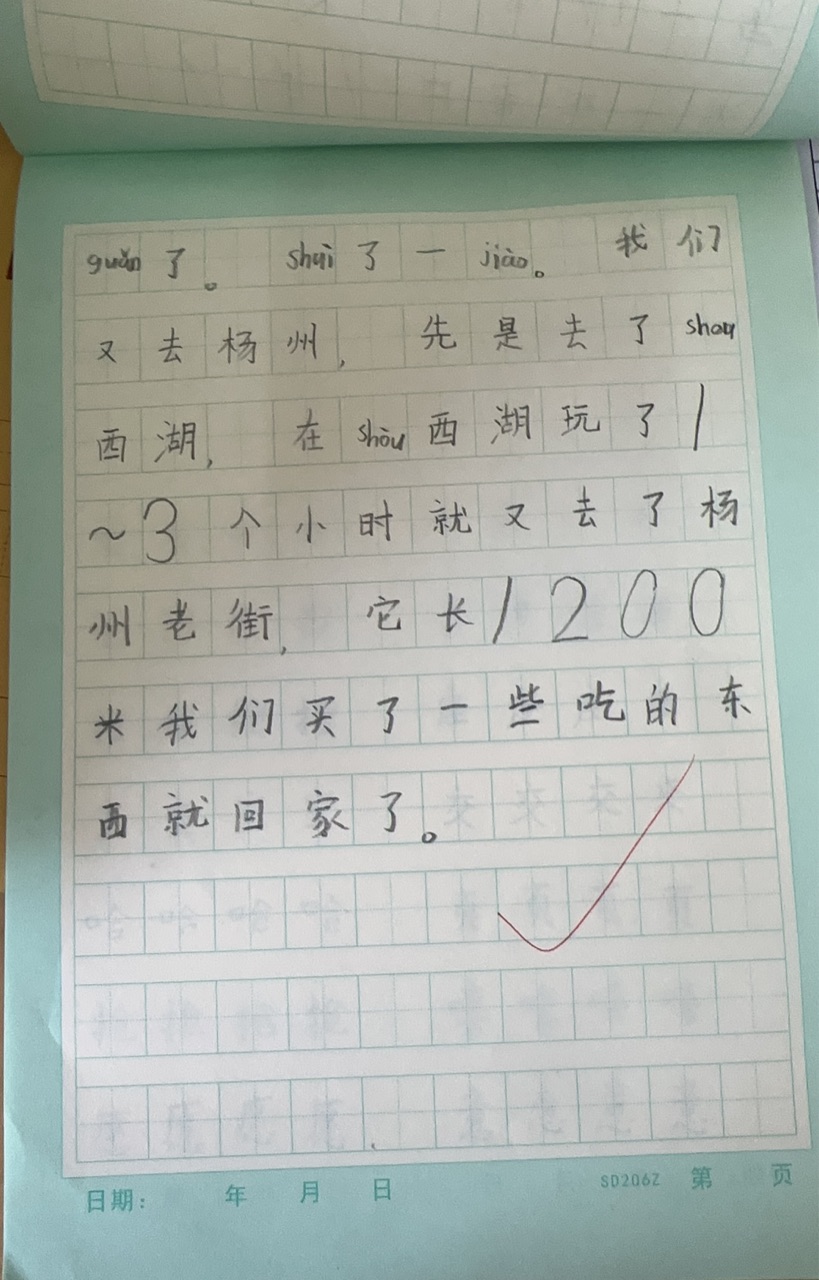 guǎn了。 shuì了一jiào。 我们
又去杨州, 先是去了shou
西湖, 在shòu西湖玩了1
~3个小时就又去了杨
州老街, 它长1200
米我们买了一些吃的东
西就回家了。
日期: 年 月 日 SD206Z 第 页